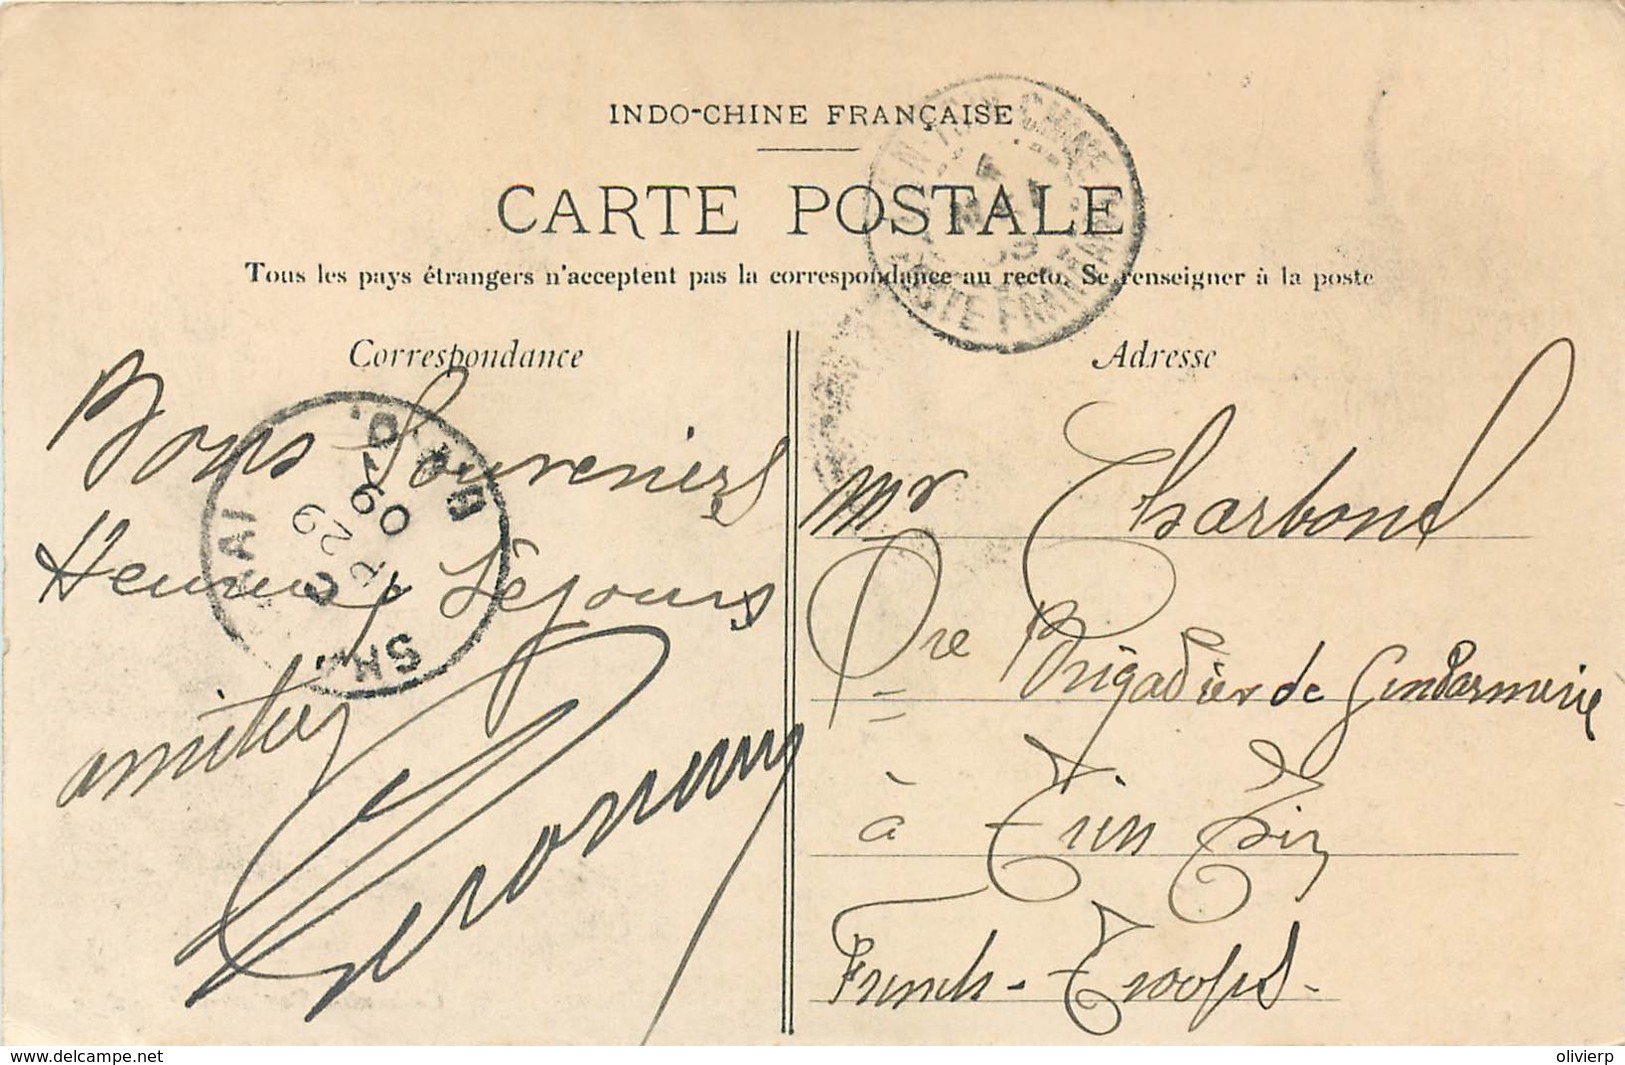 INDO-CHINE FRANÇAISE
CARTE POSTALE
Tous les pays étrangers n'acceptent pas la correspondance au recto. Se renseigner à la poste
Correspondance
Bons Souvenirs
Séjours
amitiés
Adresse
Mr Charbonel
Brigadier de Gendarmerie
à Tien Tzin
French-Troops-
CHINE
POSTE FRANÇAISE
SHANGHAI
29
09
www.delcampe.net
olivierp